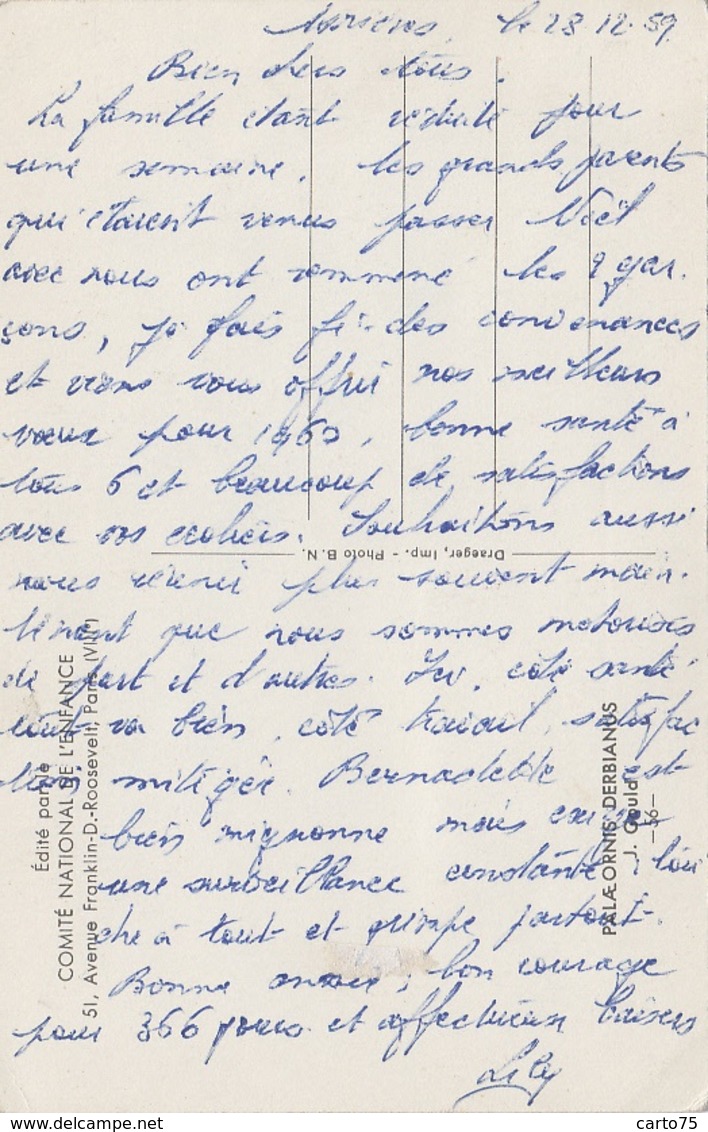 le 28.12.59.
Bien chers tous,
La famille étant réduite pour
une semaine, les grands parents
qui étaient venus passer Noël
avec nous ont remmené les 2 gar.
çons, je fais fi des convenances
et viens vous offrir nos meilleurs
vœux pour 1960, bonne santé à
tous 6 et beaucoup de satisfactions
avec vos écoliers. Souhaitons aussi
nous réunir plus souvent main.
tenant que nous sommes motorisés
de part et d'autres. Ici, côté santé
tout va bien, côté travail, satisfac
tions mitigée. Bernadette est
bien mignonne mais exige
une surveillance constante, tou
che à tout et grimpe partout.
Bonne année, bon courage
pour 366 jours et affectueux baisers
Lily
Draeger, Imp. - Photo B. N.
Édité par le
COMITÉ NATIONAL DE L'ENFANCE
51, Avenue Franklin-D.-Roosevelt, Paris (VIIIe)
PALÆORNIS DERBIANUS
J. Gould
—56—
carto75